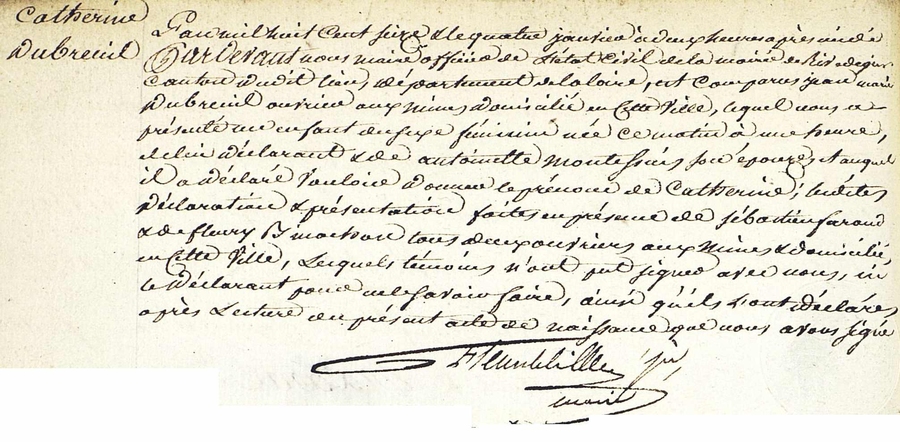 Catherine
Dubreuil
L'an mil huit cent seize & le quatre janvier à deux heures après midi
Pardevant nous maire officier de l'état Civil de la mairie de Rive de gier
canton dudit lieu, département de la loire, est comparu jean marie
Dubreuil ouvrier aux Mines, domicilié en Cette Ville, lequel nous a
présenté un enfant du sexe féminin née ce matin à une heure,
de lui déclarant & de antoinette son épouse, & auquel
il a déclaré Vouloir donner le prénom de Catherine; lesdites
déclaration & présentation faites en présence de sébastien farond
& de fleury tous deux ouvriers aux Mines & domiciliés
en Cette Ville, Lesquels témoins n'ont pu signer avec nous, ni
le déclarant pour ne le savoir faire, ainsi qu'ils l'ont déclaré,
après Lecture du présent acte de naissance que nous avons signé
maire